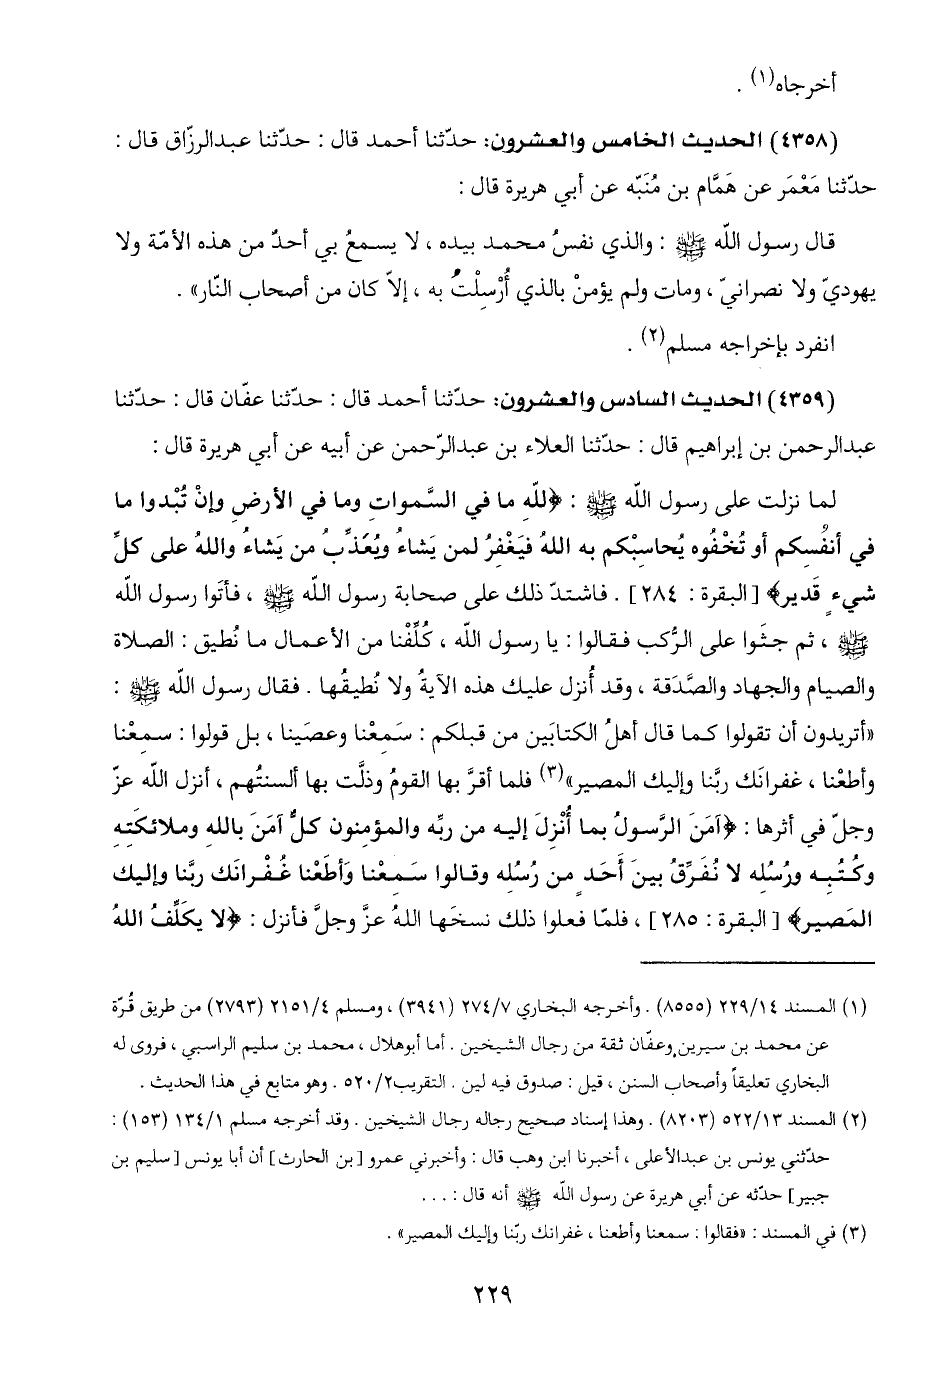 أخرجاه(١) .
(٤٣٥٨) الحديث الخامس والعشرون: حدّثنا أحمد قال : حدّثنا عبدالرزّاق قال :
حدّثنا مَعْمَر عن هَمَّام بن مُنَبّه عن أبي هريرة قال :
قال رسول الله ﷺ : والذي نفسُ محمد بيده ، لا يسمعُ بي أحدٌ من هذه الأمّة ولا
يهوديّ ولا نصرانيّ ، ومات ولم يؤمنْ بالذي أُرْسِلْتُ به ، إلاّ كان من أصحاب النّار» .
انفرد بإخراجه مسلم(٢) .
(٤٣٥٩) الحديث السادس والعشرون: حدّثنا أحمد قال : حدّثنا عفّان قال : حدّثنا
عبدالرحمن بن إبراهيم قال : حدّثنا العلاء بن عبدالرّحمن عن أبيه عن أبي هريرة قال :
لما نزلت على رسول الله ﷺ : ﴿لله ما في السَّموات وما في الأرضِ وإنْ تُبْدوا ما
في أنفُسِكم أو تُخْفُوه يُحاسِبْكم به اللهُ فيَغْفِرُ لمن يَشاءُ ويُعَذِّبُ من يَشاءُ واللهُ على كلِّ
شيءٍ قَدير﴾ [البقرة : ٢٨٤] . فاشتدّ ذلك على صحابة رسول الله ﷺ ، فأتَوا رسول الله
ﷺ ، ثم جثَوا على الرُّكب فقالوا : يا رسول الله ، كُلِّفْنا من الأعمال ما نُطيق : الصلاة
والصيام والجهاد والصَّدَقة ، وقد أُنزل عليك هذه الآيةُ ولا نُطيقُها . فقال رسول الله ﷺ :
«أتريدون أن تقولوا كما قال أهلُ الكتابَين من قبلكم : سَمِعْنا وعصَينا ، بل قولوا : سمِعْنا
وأطعْنا ، غفرانَك ربَّنا وإليك المصير»(٣) فلما أقرَّ بها القومُ وذلَّت بها ألسنتُهم ، أنزل الله عزّ
وجلّ في أثرها : ﴿آمَنَ الرَّسولُ بما أُنْزِلَ إليه من ربِّه والمؤمنون كلٌّ آمَنَ بالله وملائكَتِه
وكُتُبِه ورُسُله لا نُفَرِّقُ بينَ أَحَدٍ من رُسُله وقالوا سَمِعْنا وَأطَعْنا غُفْرانَك ربَّنا وإليك
المَصير﴾ [البقرة : ٢٨٥] ، فلمّا فعلوا ذلك نسخَها اللهُ عزَّ وجلَّ فأنزل : ﴿لا يكَلِّفُ اللهُ
(١) المسند ٢٢٩/١٤ (٨٥٥٥) . وأخرجه البخاري ٢٧٤/٧ (٣٩٤١) ، ومسلم ٢١٥١/٤ (٢٧٩٣) من طريق قُرّة
عن محمد بن سيرين وعفّان ثقة من رجال الشيخين . أما أبوهلال ، محمد بن سليم الراسبي ، فروى له
البخاري تعليقاً وأصحاب السنن ، قيل : صدوق فيه لين . التقريب ٥٢٠/٢ . وهو متابع في هذا الحديث .
(٢) المسند ٥٢٢/١٣ (٨٢٠٣) . وهذا إسناد صحيح رجاله رجال الشيخين . وقد أخرجه مسلم ١٣٤/١ (١٥٣) :
حدّثني يونس بن عبدالأعلى ، أخبرنا ابن وهب قال : وأخبرني عمرو [بن الحارث] أن أبا يونس [سليم بن
جبير] حدّثه عن أبي هريرة عن رسول الله ﷺ أنه قال : . . .
(٣) في المسند : «فقالوا : سمعنا وأطعنا ، غفرانك ربّنا وإليك المصير» .
٢٢٩